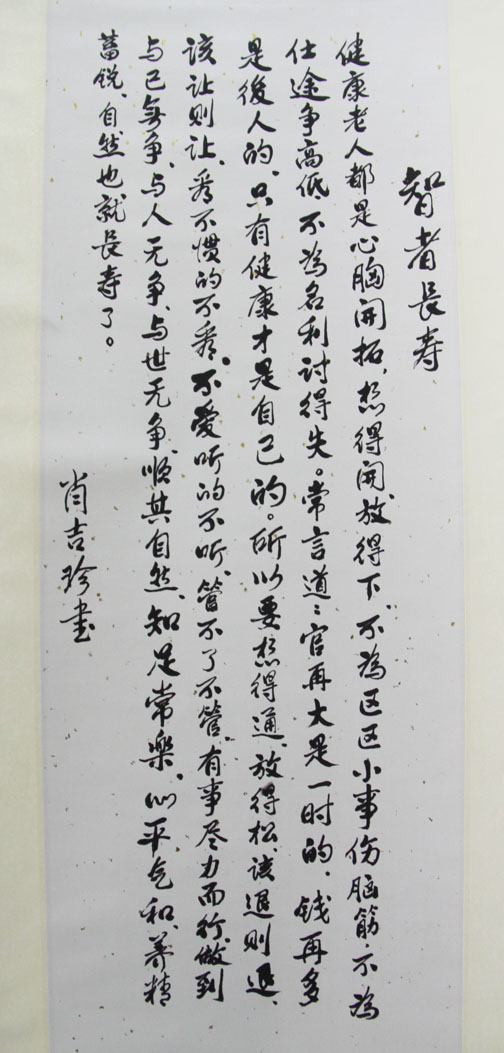 智者長寿
健康老人都是心胸开拓，想得开，放得下，不為区区小事伤脑筋，不為
仕途争高低，不為名利讨得失。常言道：官再大是一时的，钱再多
是後人的，只有健康才是自己的。所以要想得通，放得松，该退则退，
该让则让，看不惯的不看，不爱听的不听，管不了不管，有事尽力而行，做到
与己無争，与人无争，与世无争，顺其自然，知足常樂，心平气和，养精
蓄锐，自然也就長寿了。
肖吉珍书